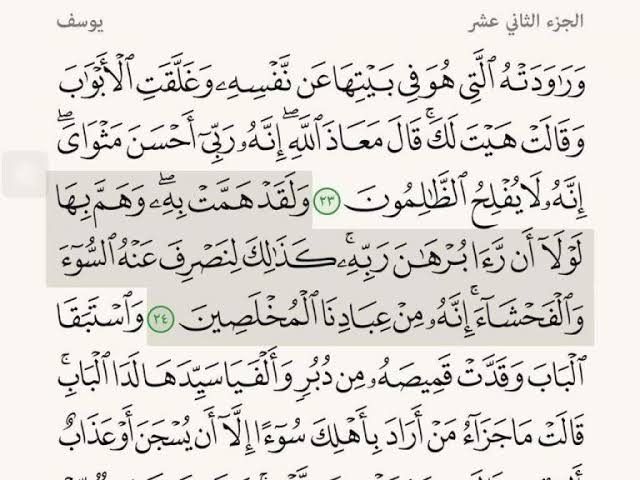 الجزء الثاني عشر
يوسف
وَرَٰوَدَتْهُ ٱلَّتِى هُوَ فِى بَيْتِهَا عَن نَّفْسِهِۦ وَغَلَّقَتِ ٱلْأَبْوَٰبَ
وَقَالَتْ هَيْتَ لَكَ ۚ قَالَ مَعَاذَ ٱللَّهِ ۖ إِنَّهُۥ رَبِّىٓ أَحْسَنَ مَثْوَاىَ ۖ
إِنَّهُۥ لَا يُفْلِحُ ٱلظَّٰلِمُونَ ٢٣ وَلَقَدْ هَمَّتْ بِهِۦ ۖ وَهَمَّ بِهَا
لَوْلَآ أَن رَّءَا بُرْهَٰنَ رَبِّهِۦ ۚ كَذَٰلِكَ لِنَصْرِفَ عَنْهُ ٱلسُّوٓءَ
وَٱلْفَحْشَآءَ ۚ إِنَّهُۥ مِنْ عِبَادِنَا ٱلْمُخْلَصِينَ ٢٤ وَٱسْتَبَقَا
ٱلْبَابَ وَقَدَّتْ قَمِيصَهُۥ مِن دُبُرٍ وَأَلْفَيَا سَيِّدَهَا لَدَا ٱلْبَابِ ۚ
قَالَتْ مَا جَزَآءُ مَنْ أَرَادَ بِأَهْلِكَ سُوٓءًا إِلَّآ أَن يُسْجَنَ أَوْ عَذَابٌ